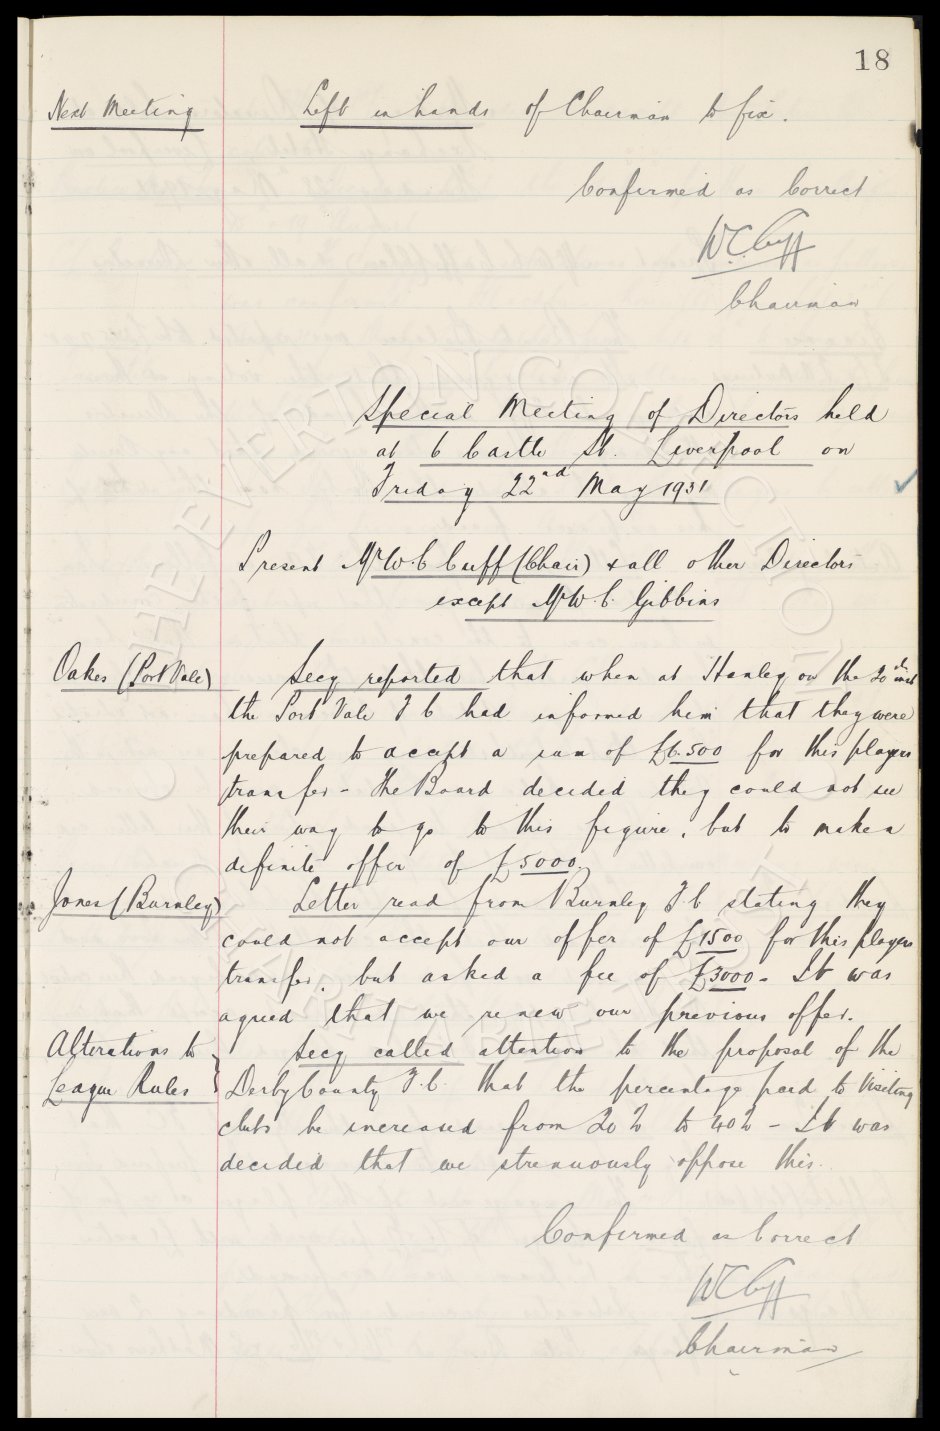 18
Next Meeting Left in hands of Chairman to fix.
Confirmed as Correct
W.C. Cuff
Chairman
Special Meeting of Directors held
at 6 Castle St. Liverpool on
Friday 22nd May 1931
Present Mr W. C. Cuff (Chair) & all other Directors
except Mr W. C. Gibbins
Oakes (Port Vale) Secy reported that when at Hanley on the 20th inst
the Port Vale F C had informed him that they were
prepared to accept a sum of £6.500 for this players
transfer - the Board decided they could not see
their way to go to this figure, but to make a
definite offer of £5000.
Jones (Burnley) Letter read from Burnley F.C stating they
could not accept our offer of £1500 for this players
transfer, but asked a fee of £3000 - It was
agreed that we renew our previous offer.
Alterations to Secy called attention to the proposal of the
League Rules } Derby County F.C. that the percentage paid to Visiting
clubs be increased from 20% to 40% - It was
decided that we strenuously oppose this.
Confirmed as Correct
W C Cuff
Chairman
THE EVERTON COLLECTION